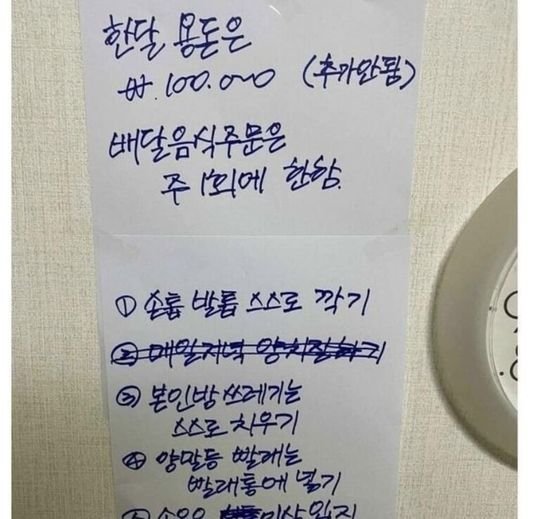 한달 용돈은
₩.100.000 (추가안됨)
배달음식주문은
주 1회에 한함.
① 손톱 발톱 스스로 깍기
② 매일저녁 양치질하기
③ 본인방 쓰레기는
스스로 치우기
④ 양말등 빨래는
빨래통에 넣기